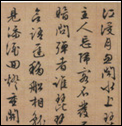 江浸月忽聞水上
主人忘歸客不發
暗問彈者誰琵
語遲移船相近
見添酒回燈重開